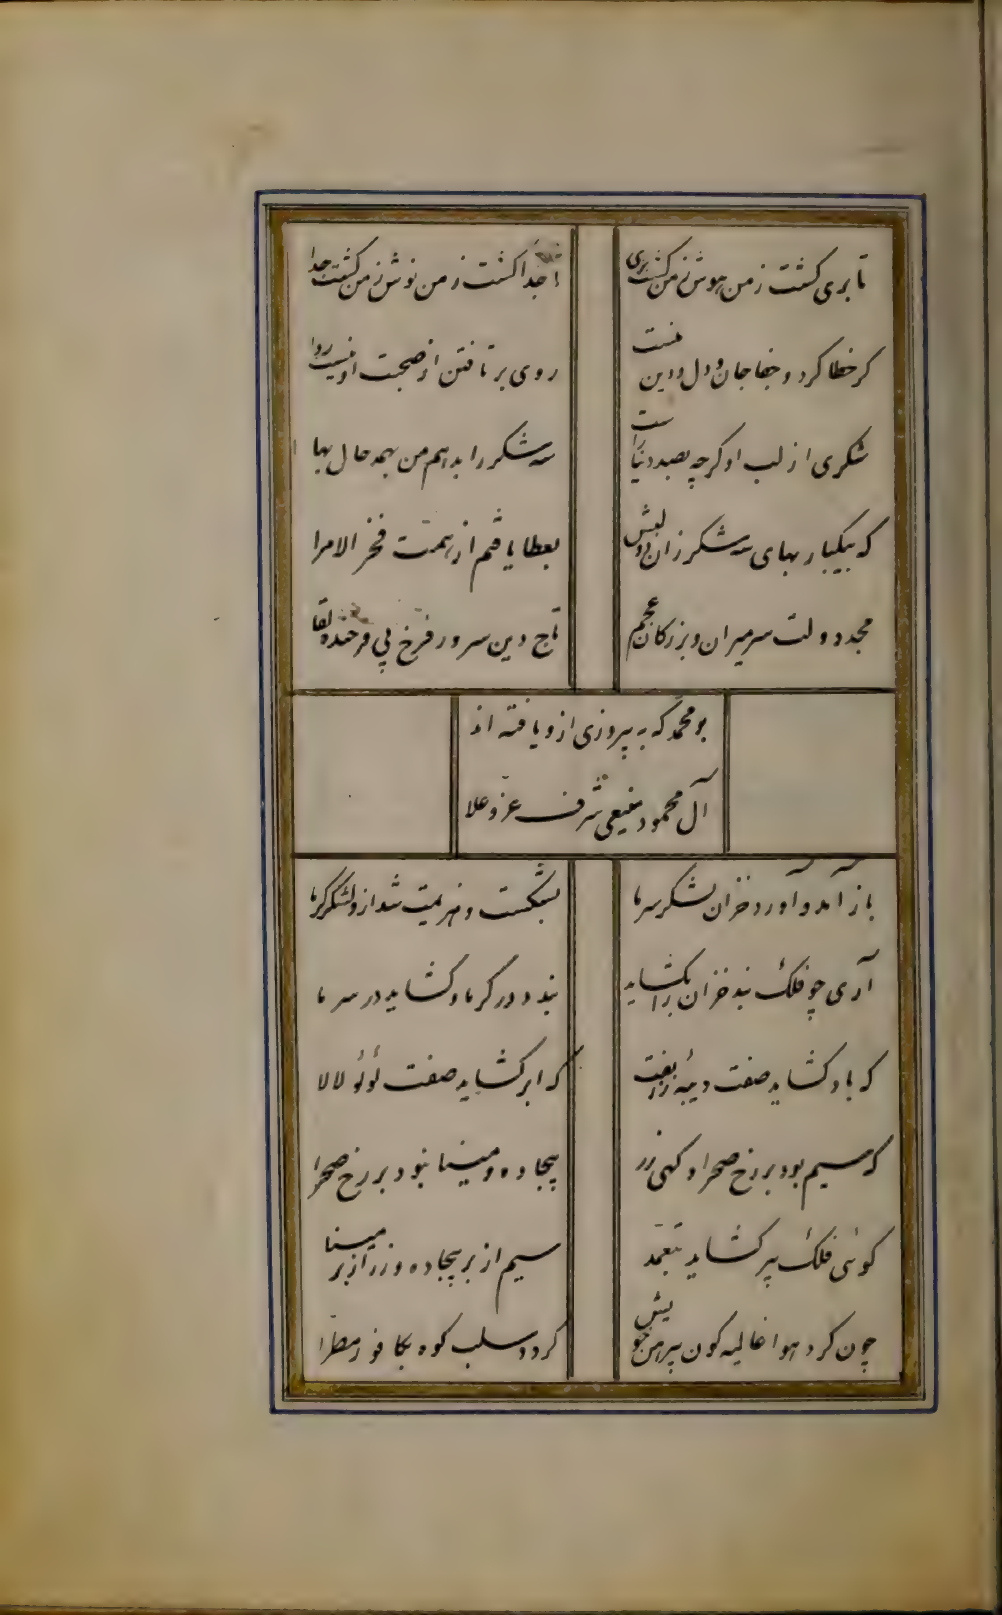 تا بری کشت ز من هوش ز من کشت بری
تا جدا کشت ز من نوش ز من کشت جدا
کر خطا کرد و جفا جان و دل و دین منست
روی بر تافتن از صحبت او نیست روا
شکری از لب او کرچه بصد دنیا راست
سه شکر را بدهم من بهمه حال بها
که بیکبار بهای سه شکر زان دو لبش
بعطا یافتم از همت فخر الامرا
مجد دولت سر میران و بزرکان عجم
تاج دین سرور فرخ پی فرخنده لقا
بو محمد که به پیروزی ازو یافته اند
آل محمود منیعی شرف و عز و علا
باز آمد و آورد خزان لشکر سرما
بشکست و هزیمت شد ازو لشکر گرما
آری چو فلک بند خزان را بکشاید
بندد در گرما و کشاید در سرما
که باد کشاید صفت دیبهٔ زربفت
که ابر کشاید صفت لؤلؤ لالا
که سیم بود بر رخ صحرا و کهی زر
بیجاده و مینا نبود بر رخ صحرا
کوئی فلک پیر کشاید بتعمد
سیم از بر بیجاده و زر از بر مینا
چون کرد هوا غالیه کون پیرهن خویش
کردد سلب کوه بکافور مطرا